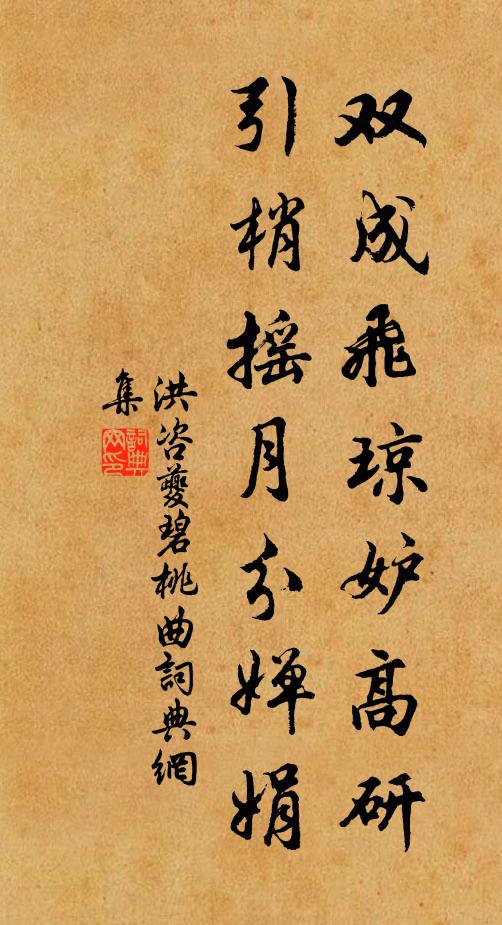 双成飛琼妒高研
引梢摇月分婵娟
洪咨夔碧桃曲詞典網
集
詞典網印